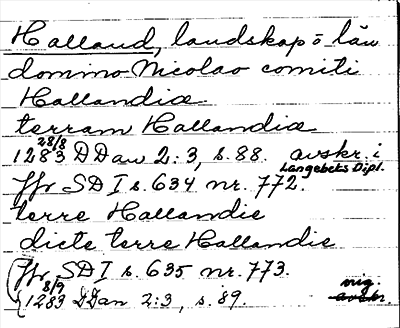 Halland, landskap o län
domino Nicolao comiti
Hallandiæ
terram Hallandiæ
28/8
1283 DDan 2:3, s. 88. avskr. i
Langebeks Dipl.
Jfr SD I s. 634 nr. 772.
terre Hallandie
dicte terre Hallandie
(Jfr SD I s. 635 nr. 773.
8/9
1283 DDan 2:3, s. 89. orig.
avskr.